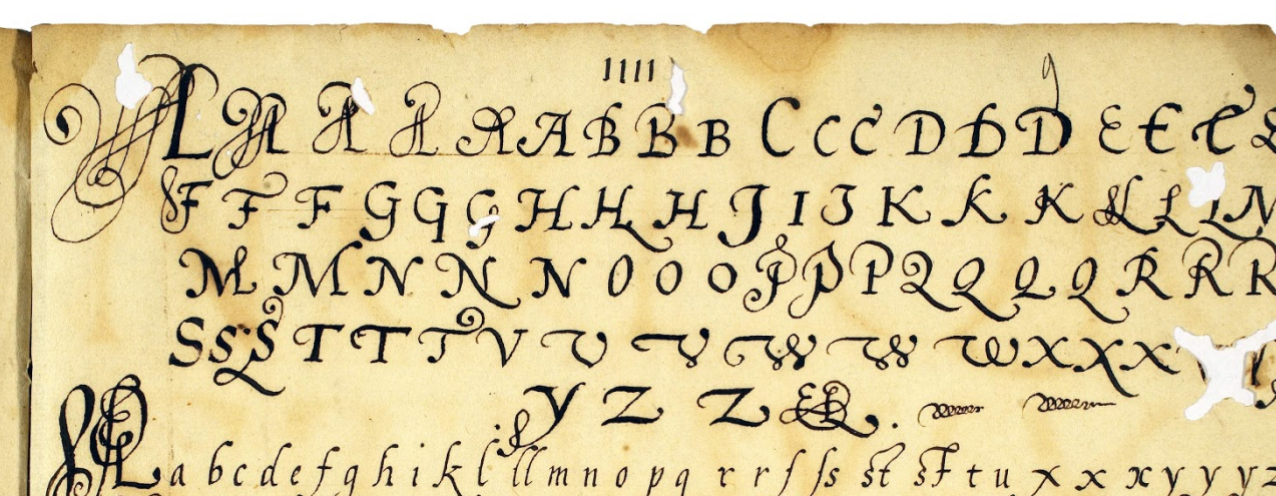 IIII
A A A A A A B B B C C C D D D E E E
F F F G G G H H H J I J K K K L L L M
M M N N N O O O P P P Q Q Q Q R R R
S S S T T T V V V W W W X X X
Y Z Z &.
A a b c d e f g h i k l ll m n o p q r r ſ ſs st st t u x x x y y y z